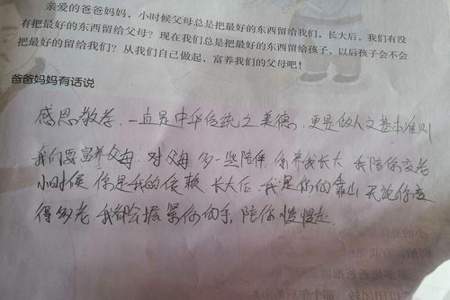 亲爱的爸爸妈妈，小时候父母总是把最好的东西留给我们，长大后，我们有没
有把最好的东西留给父母？现在我们总是把最好的东西留给孩子，以后孩子会不会
把最好的留给我们？从我们自己做起，富养我们的父母吧！
爸爸妈妈有话说
感恩敬孝，一直是中华传统之美德，更是做人之基本准则
我们要富养父母，对父母多一些陪伴，你养我长大 我陪你变老
小时候 你是我的依赖，长大后 我是你的靠山 无论你变
得多老 我都会握紧你的手 陪你慢慢走